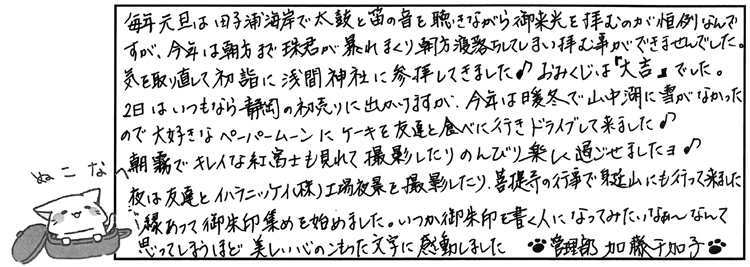 毎年元旦は田子浦海岸で太鼓と笛の音を聴きながら御来光を拝むのが恒例なんで
すが、今年は朝方まで珠君が暴れまくり朝方寝落ちしてしまい拝む事ができませんでした。
気を取り直して初詣に浅間神社に参拝してきました♪おみくじは『大吉』でした。
2日はいつもなら静岡の初売りに出かけますが、今年は暖冬で山中湖に雪がなかった
ので大好きなペーパームーンにケーキを友達と食べに行きドライブして来ました♪
朝霧でキレイな紅富士も見れて撮影したりのんびり楽しく過ごせましたヨ♪
夜は友達とイハラニッケイ(株)工場夜景を撮影したり、菩提寺の行事で身延山にも行って来ました
縁あって御朱印集めを始めました。いつか御朱印を書く人になってみたいなぁ〜なんて
思ってしまうほど美しい心のこもった文字に感動しました 管理部 加藤千加子
ぬこなべ